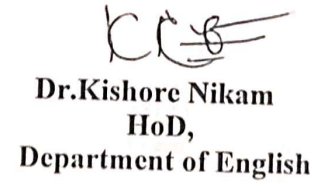 Dr.Kishore Nikam
HoD,
Department of English